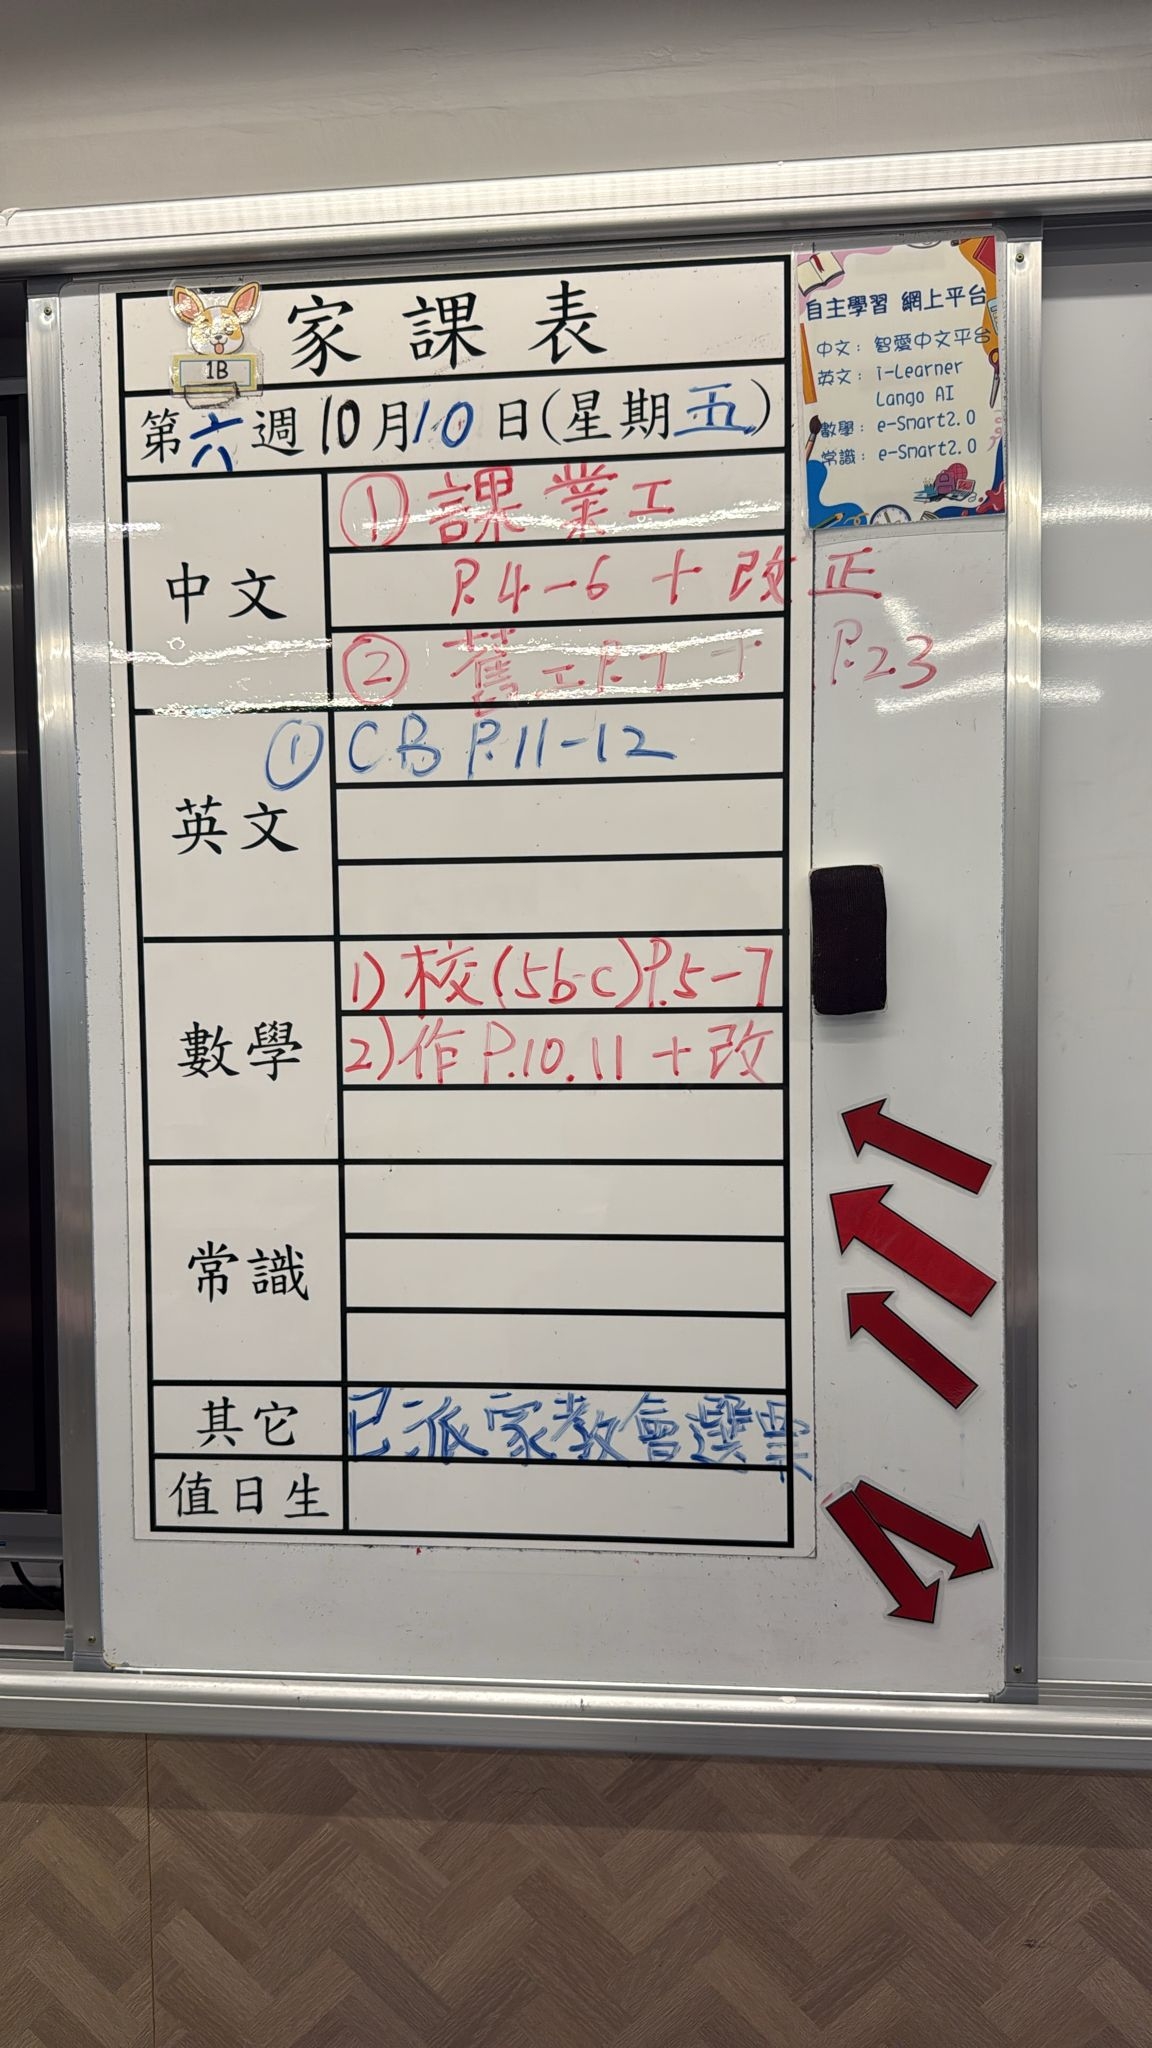 家課表
1B
第六週10月10日(星期五)
中文
① 課業工
P.4-6 + 改正
② 舊工P.7 + P.23
英文
① CB P.11-12
數學
1) 校(5b-c)P.5-7
2) 作P.10.11 + 改
常識
其它
已派家教會選票
值日生
自主學習 網上平台
中文: 智愛中文平台
英文: i-Learner
Lango AI
數學: e-Smart2.0
常識: e-Smart2.0